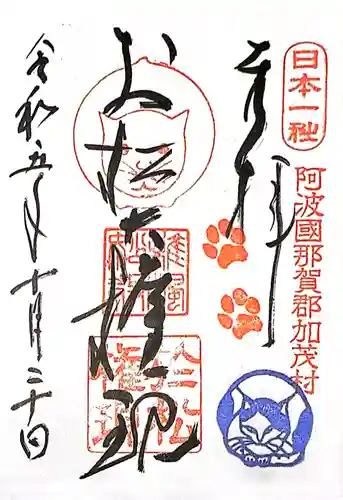 日本一社
阿波國那賀郡加茂村
奉拝
お松大権現
令和五年十月二十日